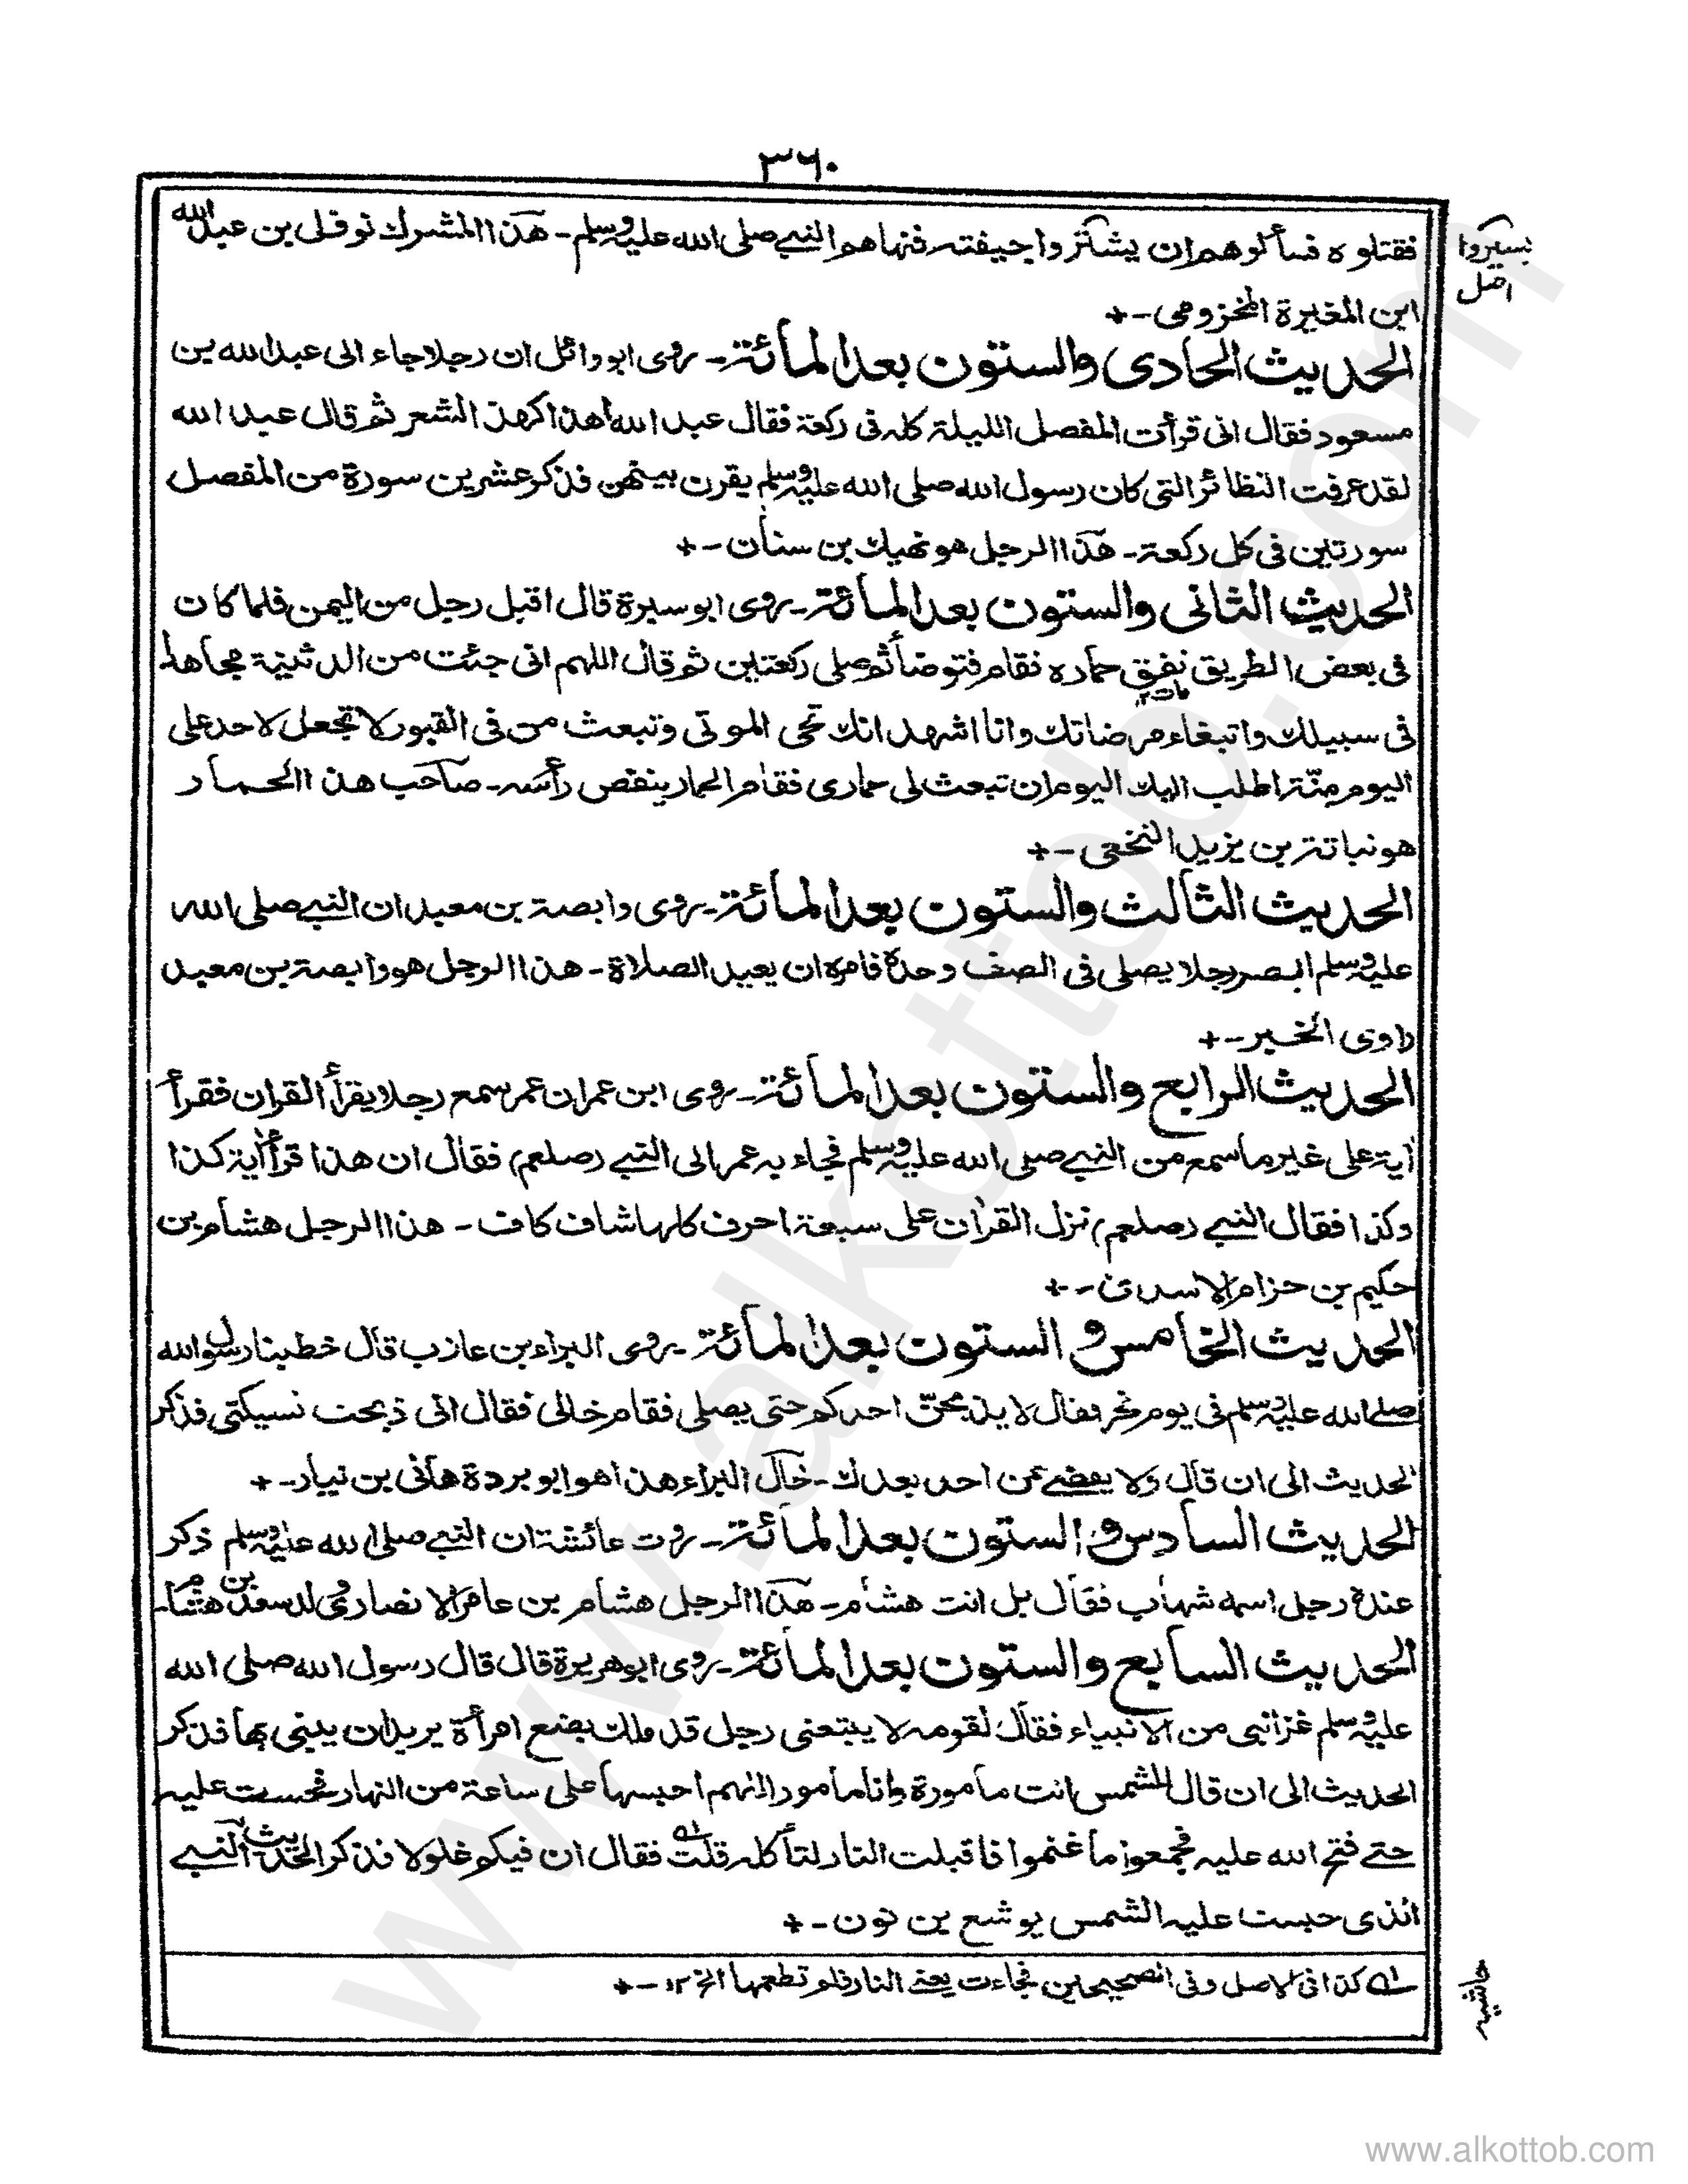 ٣٦٠
فقتلوه فسألوهم ان يشتروا جيفته فنهاهم النبي صلى الله عليه وسلم ـ هذا المشرك نوفل بن عبد الله
بسيروا
اصل
ابن المغيرة المخزومي ـ +
الحديث الحادى والستون بعد المائة ـ روى ابو وائل ان رجلا جاء الى عبد الله بن
مسعود فقال انى قرأت المفصل الليلة كله فى ركعة فقال عبد الله أهذا كهذ الشعر ثم قال عبد الله
لقد عرفت النظائر التى كان رسول الله صلى الله عليه وسلم يقرن بينهن فذكر عشرين سورة من المفصل
سورتين فى كل ركعة ـ هذا الرجل هو نهيك بن سنان ـ +
الحديث الثانى والستون بعد المائة ـ روى ابو سبرة قال اقبل رجل من اليمن فلما كان
فى بعض الطريق نفق حماره فقام فتوضأ ثم صلى ركعتين ثم قال اللهم انى جئت من الدثينة مجاهدا
فى سبيلك وابتغاء مرضاتك وانا اشهد انك تحى الموتى وتبعث من فى القبور لا تجعل لاحد على
اليوم منّة اطلب اليك اليوم ان تبعث لى حمارى فقام الحمار ينفض رأسه ـ صاحب هذا الحمار
هو نباتة بن يزيد النخعى ـ +
الحديث الثالث والستون بعد المائة ـ روى وابصة بن معبد ان النبي صلى الله
عليه وسلم ابصر رجلا يصلى فى الصف وحده فامره ان يعيد الصلاة ـ هذا الرجل هو وابصة بن معبد
راوى الخبر ـ +
الحديث الرابع والستون بعد المائة ـ روى ابن عمر ان عمر سمع رجلا يقرأ القران فقرأ
آية على غير ما سمع من النبي صلى الله عليه وسلم فجاء به عمر الى النبي (صلعم) فقال ان هذا قرأ آية كذا
وكذا فقال النبي (صلعم) نزل القران على سبعة احرف كلها شاف كاف ـ هذا الرجل هشام بن
حكيم بن حزام الاسدى ـ +
الحديث الخامس والستون بعد المائة ـ روى البراء بن عازب قال خطبنا رسول الله
صلى الله عليه وسلم فى يوم نحر فقال لا يذبحنّ احدكم حتى يصلى فقام خالى فقال انى ذبحت نسيكتى فذكر
الحديث الى ان قال ولا يقضي عن احد بعدك ـ خال البراء هذا هو ابو بردة هانى بن نيار ـ +
الحديث السادس والستون بعد المائة ـ روت عائشة ان النبي صلى الله عليه وسلم ذكر
عنده رجل اسمه شهاب فقال بل انت هشام ـ هذا الرجل هشام بن عامر الانصارى والد سعد بن هشام ـ
الحديث السابع والستون بعد المائة ـ روى ابو هريرة قال قال رسول الله صلى الله
عليه وسلم غزا نبى من الانبياء فقال لقومه لا يتبعنى رجل قد ملك بضع امرأة يريد ان يبنى بها فذكر
الحديث الى ان قال للشمس انت مأمورة وانا مأمور اللهم احبسها على ساعة من النهار فحبست عليه
حتى فتح الله عليه فجمعوا ما غنموا فاقبلت النار لتأكله قلت فقال ان فيكم غلولا فذكر الحديث النبي
الذى حبست عليه الشمس يوشع بن نون ـ +
كذا فى الاصل وفى الصحيحين فجاءت يعنى النار فلم تطعمها الخ ١٢ ـ +
حاشيه
www.alkottob.com
www.alkottob.com